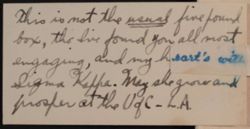 This is not the usual five pound
box, tho I've found you all most
engaging, and my heart's with
Sigma Kappa. May she grow and
prosper at the U of C - L.A.